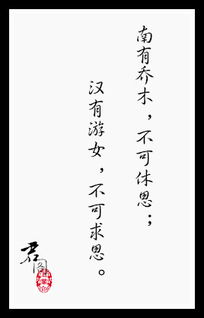 南有乔木，不可休思；
汉有游女，不可求思。
君